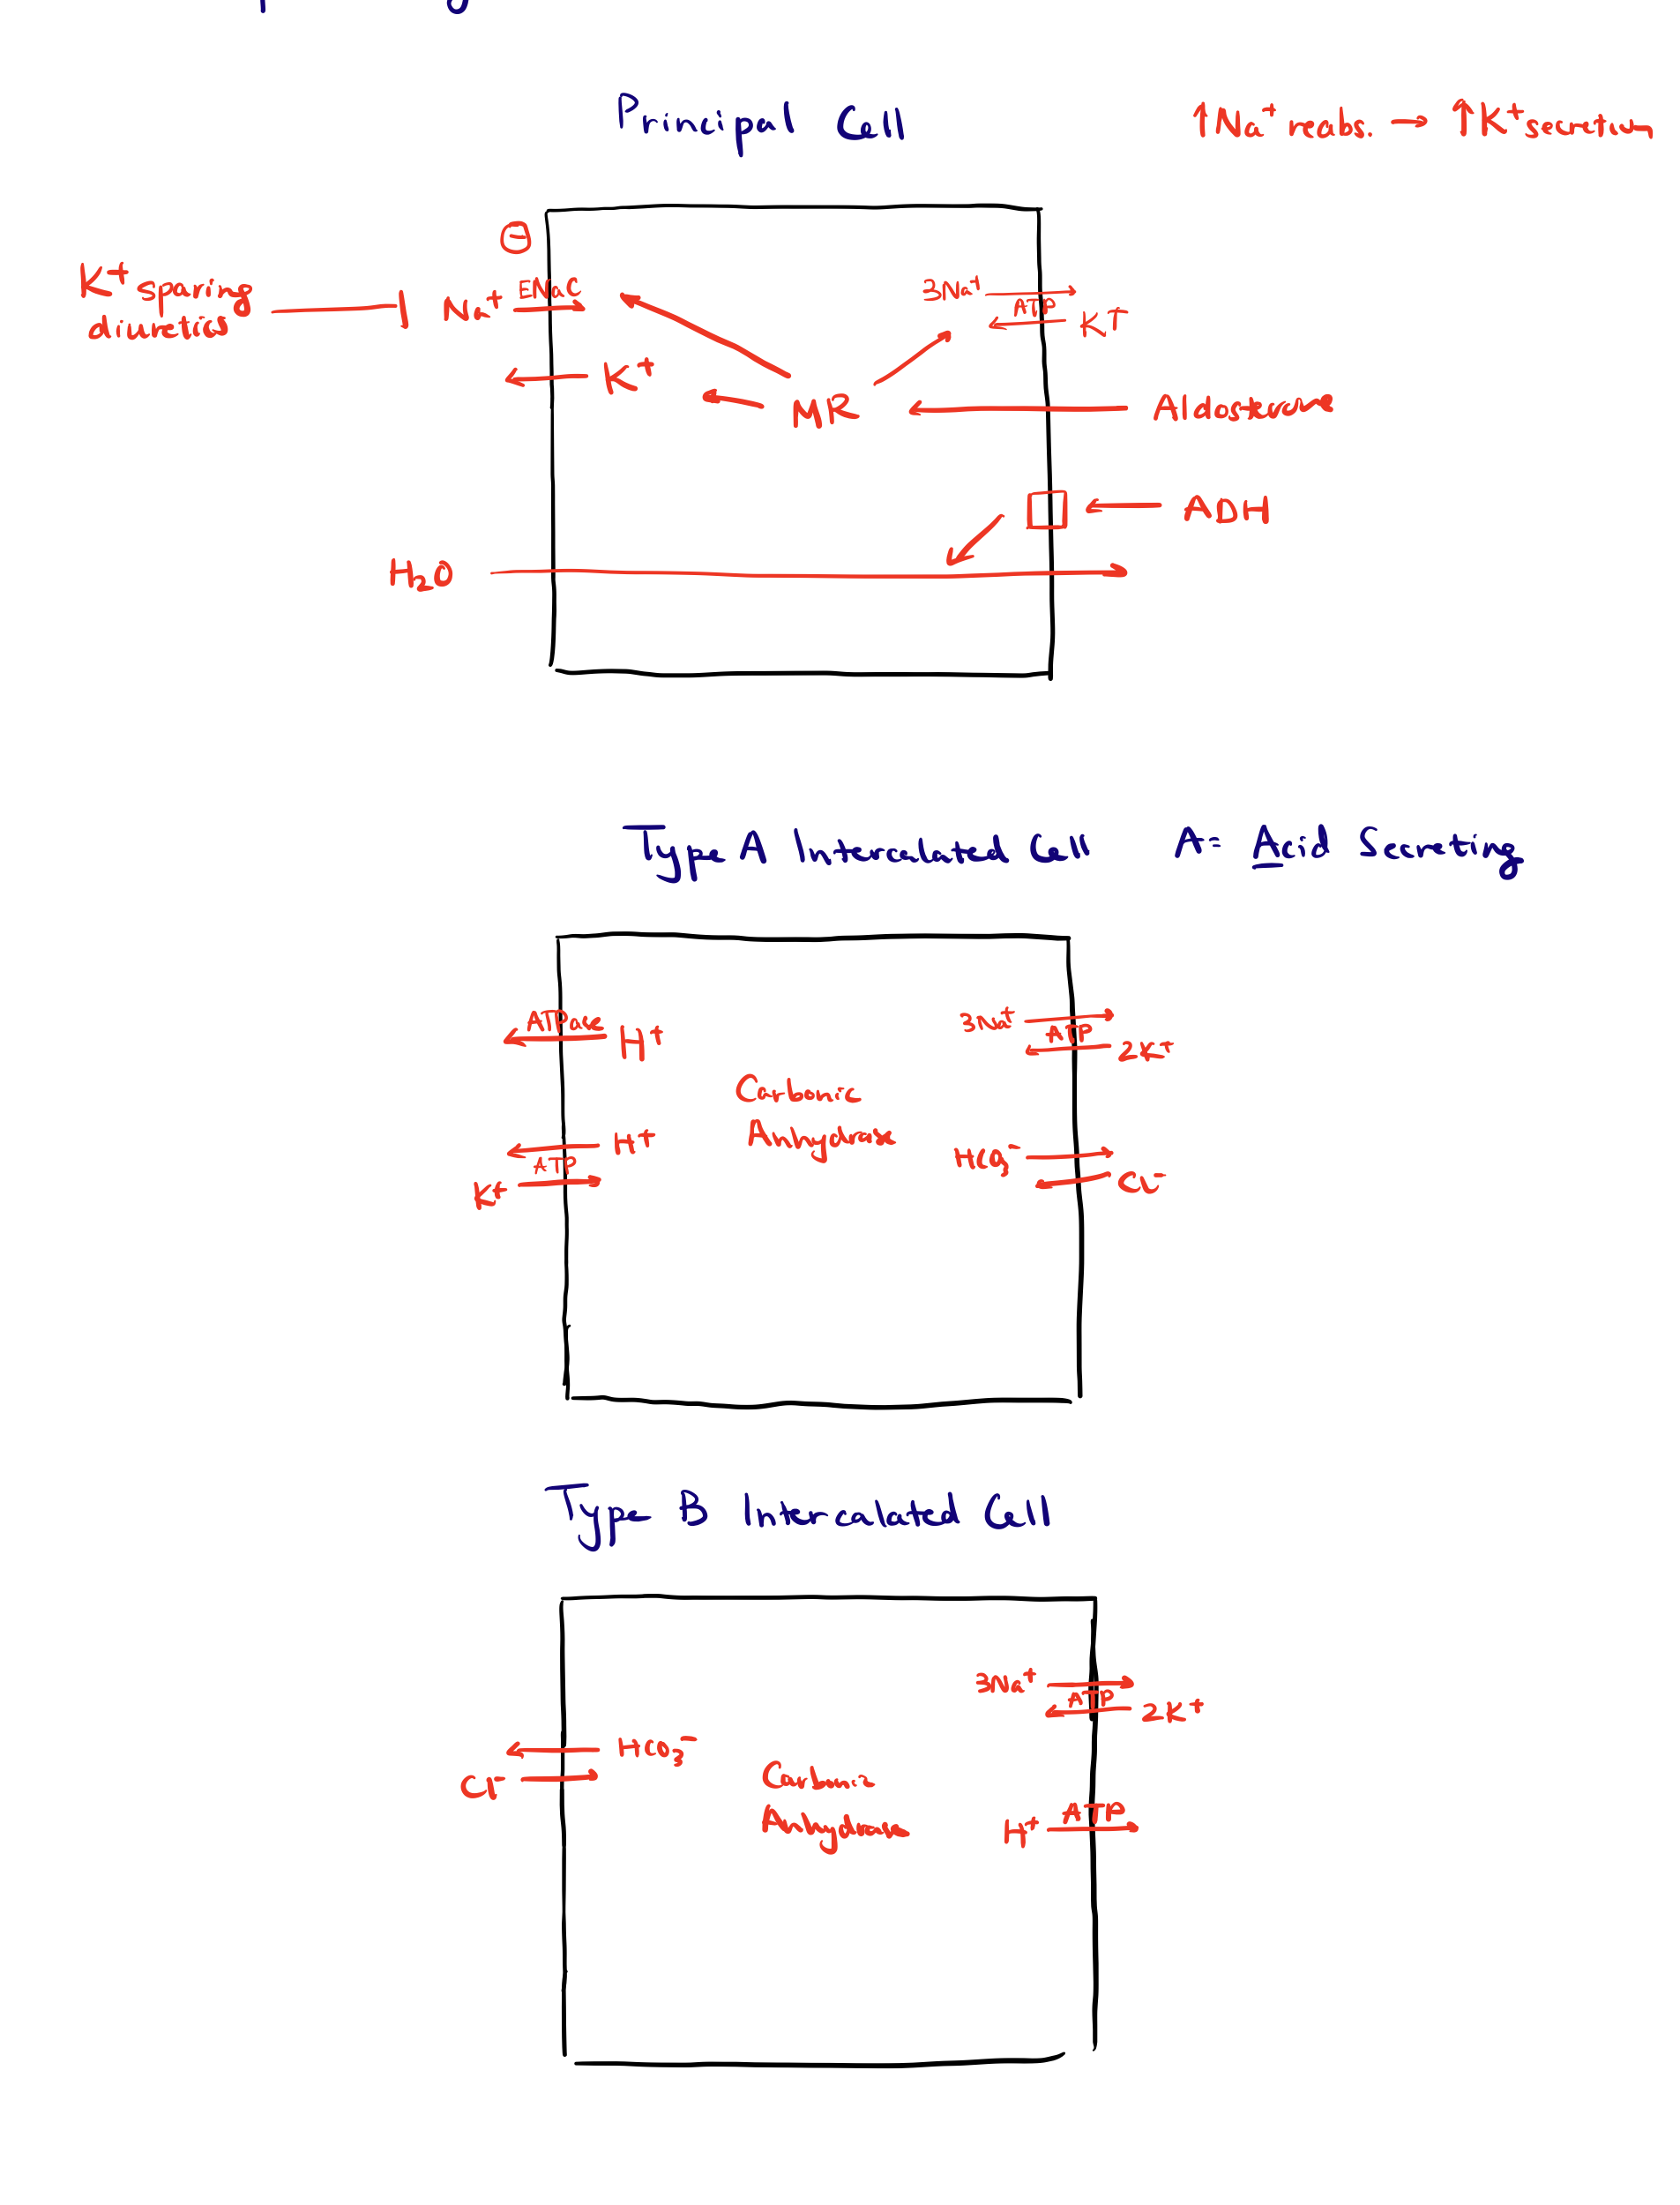 Principal Cell
↑Na⁺ reabs. → ↑K⁺ secretion
⊖
K⁺ sparing
diuretics
Na⁺
ENaC
3Na⁺
ATP
K⁺
K⁺
MR
Aldosterone
ADH
H₂O
Type A Intercalated Cell A= Acid Secreting
ATPase
H⁺
3Na⁺
ATP
2K⁺
Carbonic
Anhydrase
H⁺
ATP
K⁺
HCO₃⁻
Cl⁻
Type B Intercalated Cell
3Na⁺
ATP
2K⁺
HCO₃⁻
Cl⁻
Carbonic
Anhydrase
ATP
H⁺